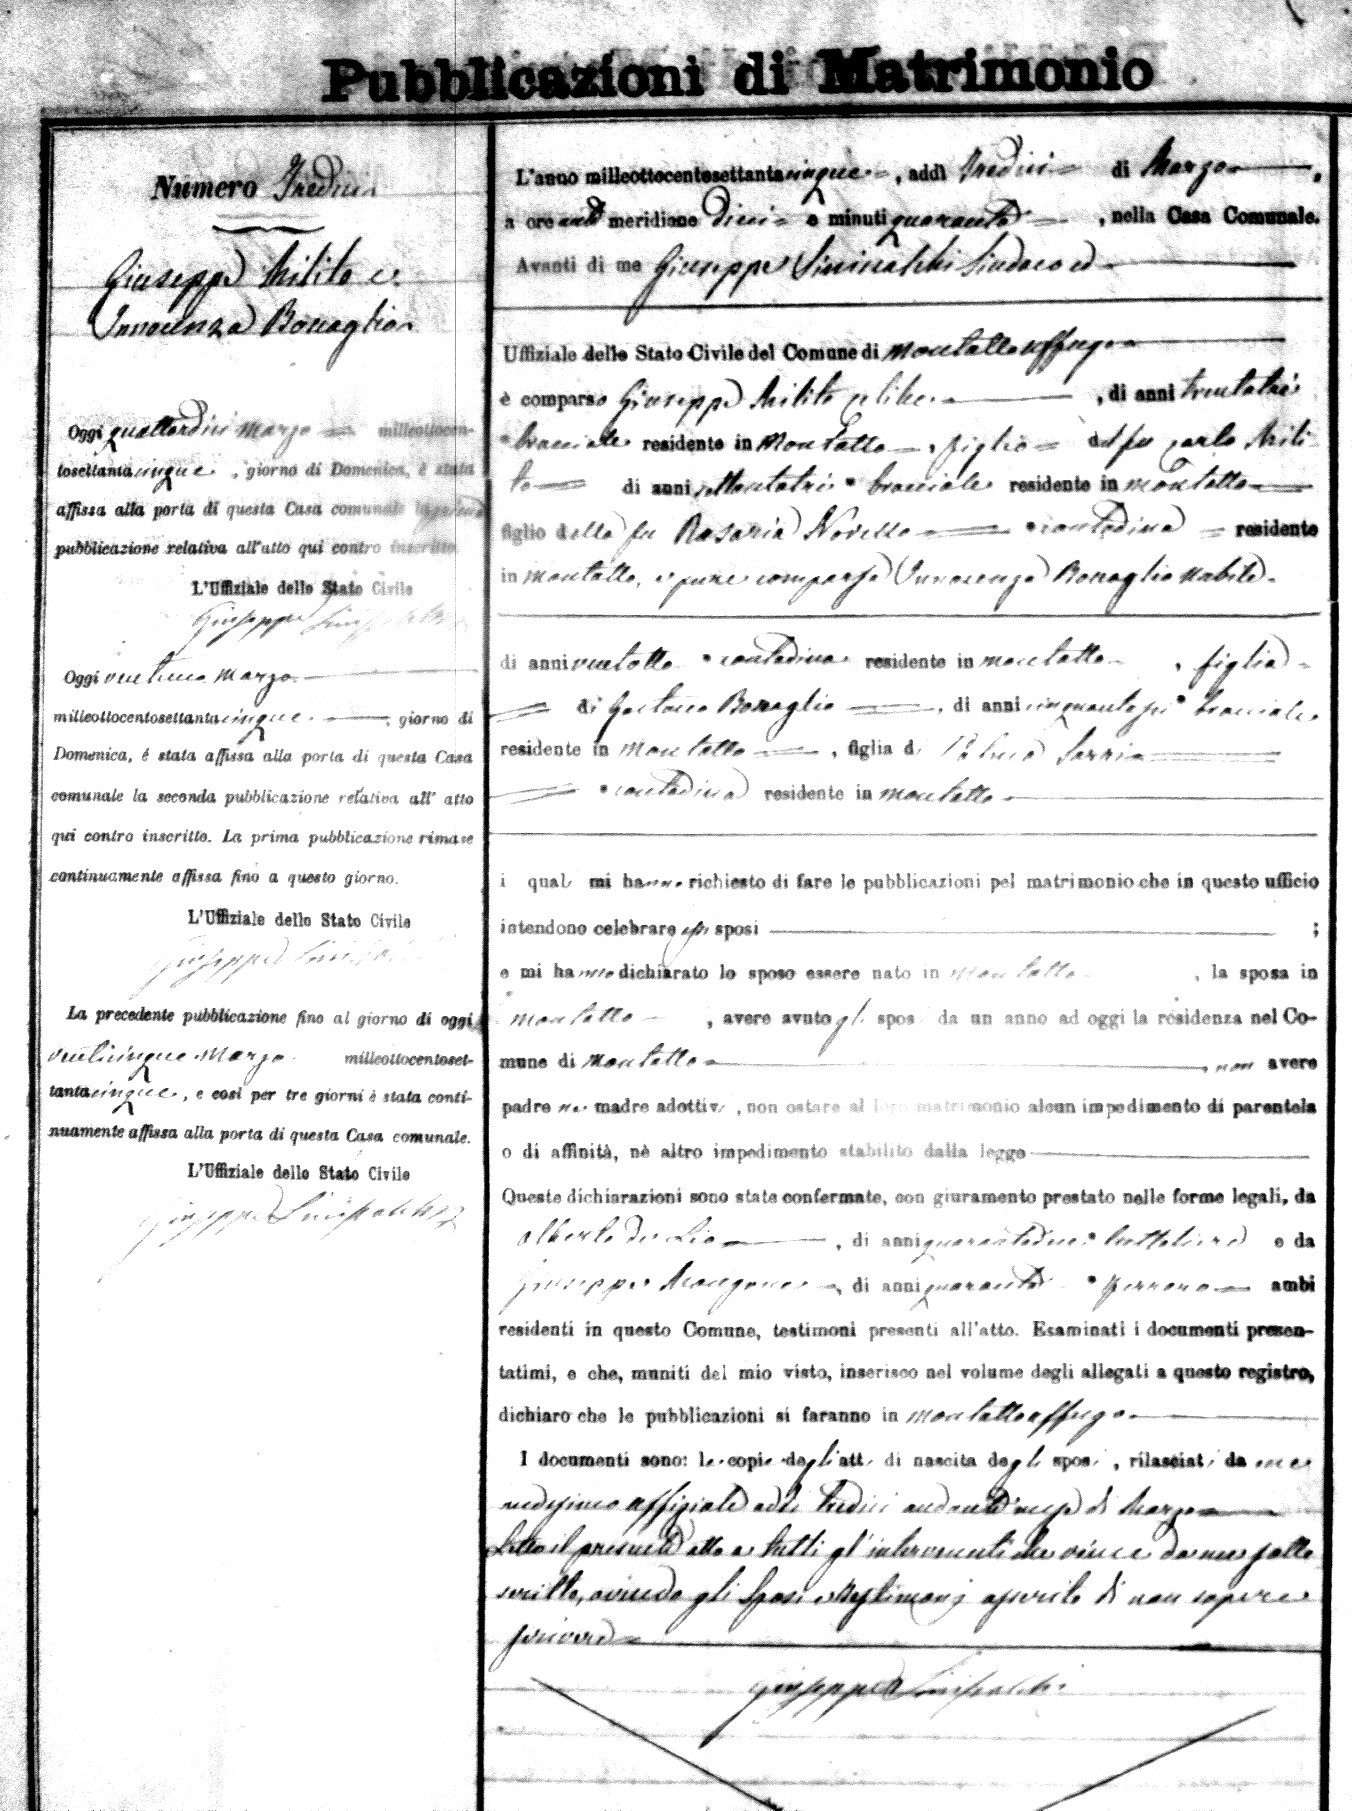 Pubblicazioni di Matrimonio
Numero Tredici
Giuseppe Milito e
Innocenza Bonaglia
Oggi quattordici Marzo milleottocen-
tosettantacinque, giorno di Domenica, è stata
affissa alla porta di questa Casa comunale la
pubblicazione relativa all'atto qui contro inscritto.
L'Uffiziale dello Stato Civile
Giuseppe
Oggi ventuno Marzo
milleottocentosettantacinque, giorno di
Domenica, è stata affissa alla porta di questa Casa
comunale la seconda pubblicazione relativa all' atto
qui contro inscritto. La prima pubblicazione rimase
continuamente affissa fino a questo giorno.
L'Uffiziale dello Stato Civile
Giuseppe
La precedente pubblicazione fino al giorno di oggi
venticinque Marzo milleottocentoset-
tantacinque, e così per tre giorni è stata conti-
nuamente affissa alla porta di questa Casa comunale.
L'Uffiziale dello Stato Civile
Giuseppe Sinisalchi
L'anno milleottocentosettantacinque, addì Tredici di Marzo,
a ore anti meridiane dieci e minuti quaranta, nella Casa Comunale.
Avanti di me Giuseppe Sinisalchi Sindaco ed
Uffiziale dello Stato Civile del Comune di Montalto uffugo
è comparso Giuseppe Milito celibe, di anni trentatrè
bracciale residente in Montalto, figlio del fu Carlo Mili
to di anni settantatrè bracciale residente in Montalto
figlio della fu Rosaria Novello contadina residente
in Montalto, e pure comparsa Innocenza Bonaglia nubile
di anni ventotto contadina residente in Montalto, figlia
di Gaetano Bonaglia, di anni cinquantasei bracciale
residente in Montalto, figlia di Sarria
contadina residente in Montalto
i quali mi hanno richiesto di fare le pubblicazioni pel matrimonio che in questo ufficio
intendono celebrare essi sposi ;
e mi hanno dichiarato lo sposo essere nato in Montalto, la sposa in
Montalto, avere avuto gli sposi da un anno ad oggi la residenza nel Co-
mune di Montalto, non avere
padre ne madre adottivi, non ostare al loro matrimonio alcun impedimento di parentela
o di affinità, nè altro impedimento stabilito dalla legge
Queste dichiarazioni sono state confermate, con giuramento prestato nelle forme legali, da
Alberto de Lio, di anni quarantadue e da
Giuseppe Mangone, di anni quaranta ferraro ambi
residenti in questo Comune, testimoni presenti all'atto. Esaminati i documenti presen-
tatimi, e che, muniti del mio visto, inserisco nel volume degli allegati a questo registro,
dichiaro che le pubblicazioni si faranno in Montalto uffugo
I documenti sono: le copie degli atti di nascita degli sposi, rilasciati da me
medesimo uffiziale addi Tredici andante mese di Marzo
Letto il presente atto a tutti gl'intervenuti che viene da me sotto
scritto, avendo gli Sposi e testimonj asserito di non sapere
scrivere
Giuseppe Sinisalchi